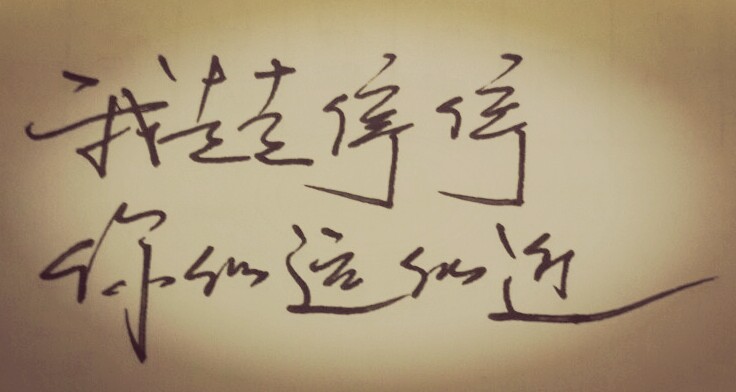 我走走停停
你似远似近